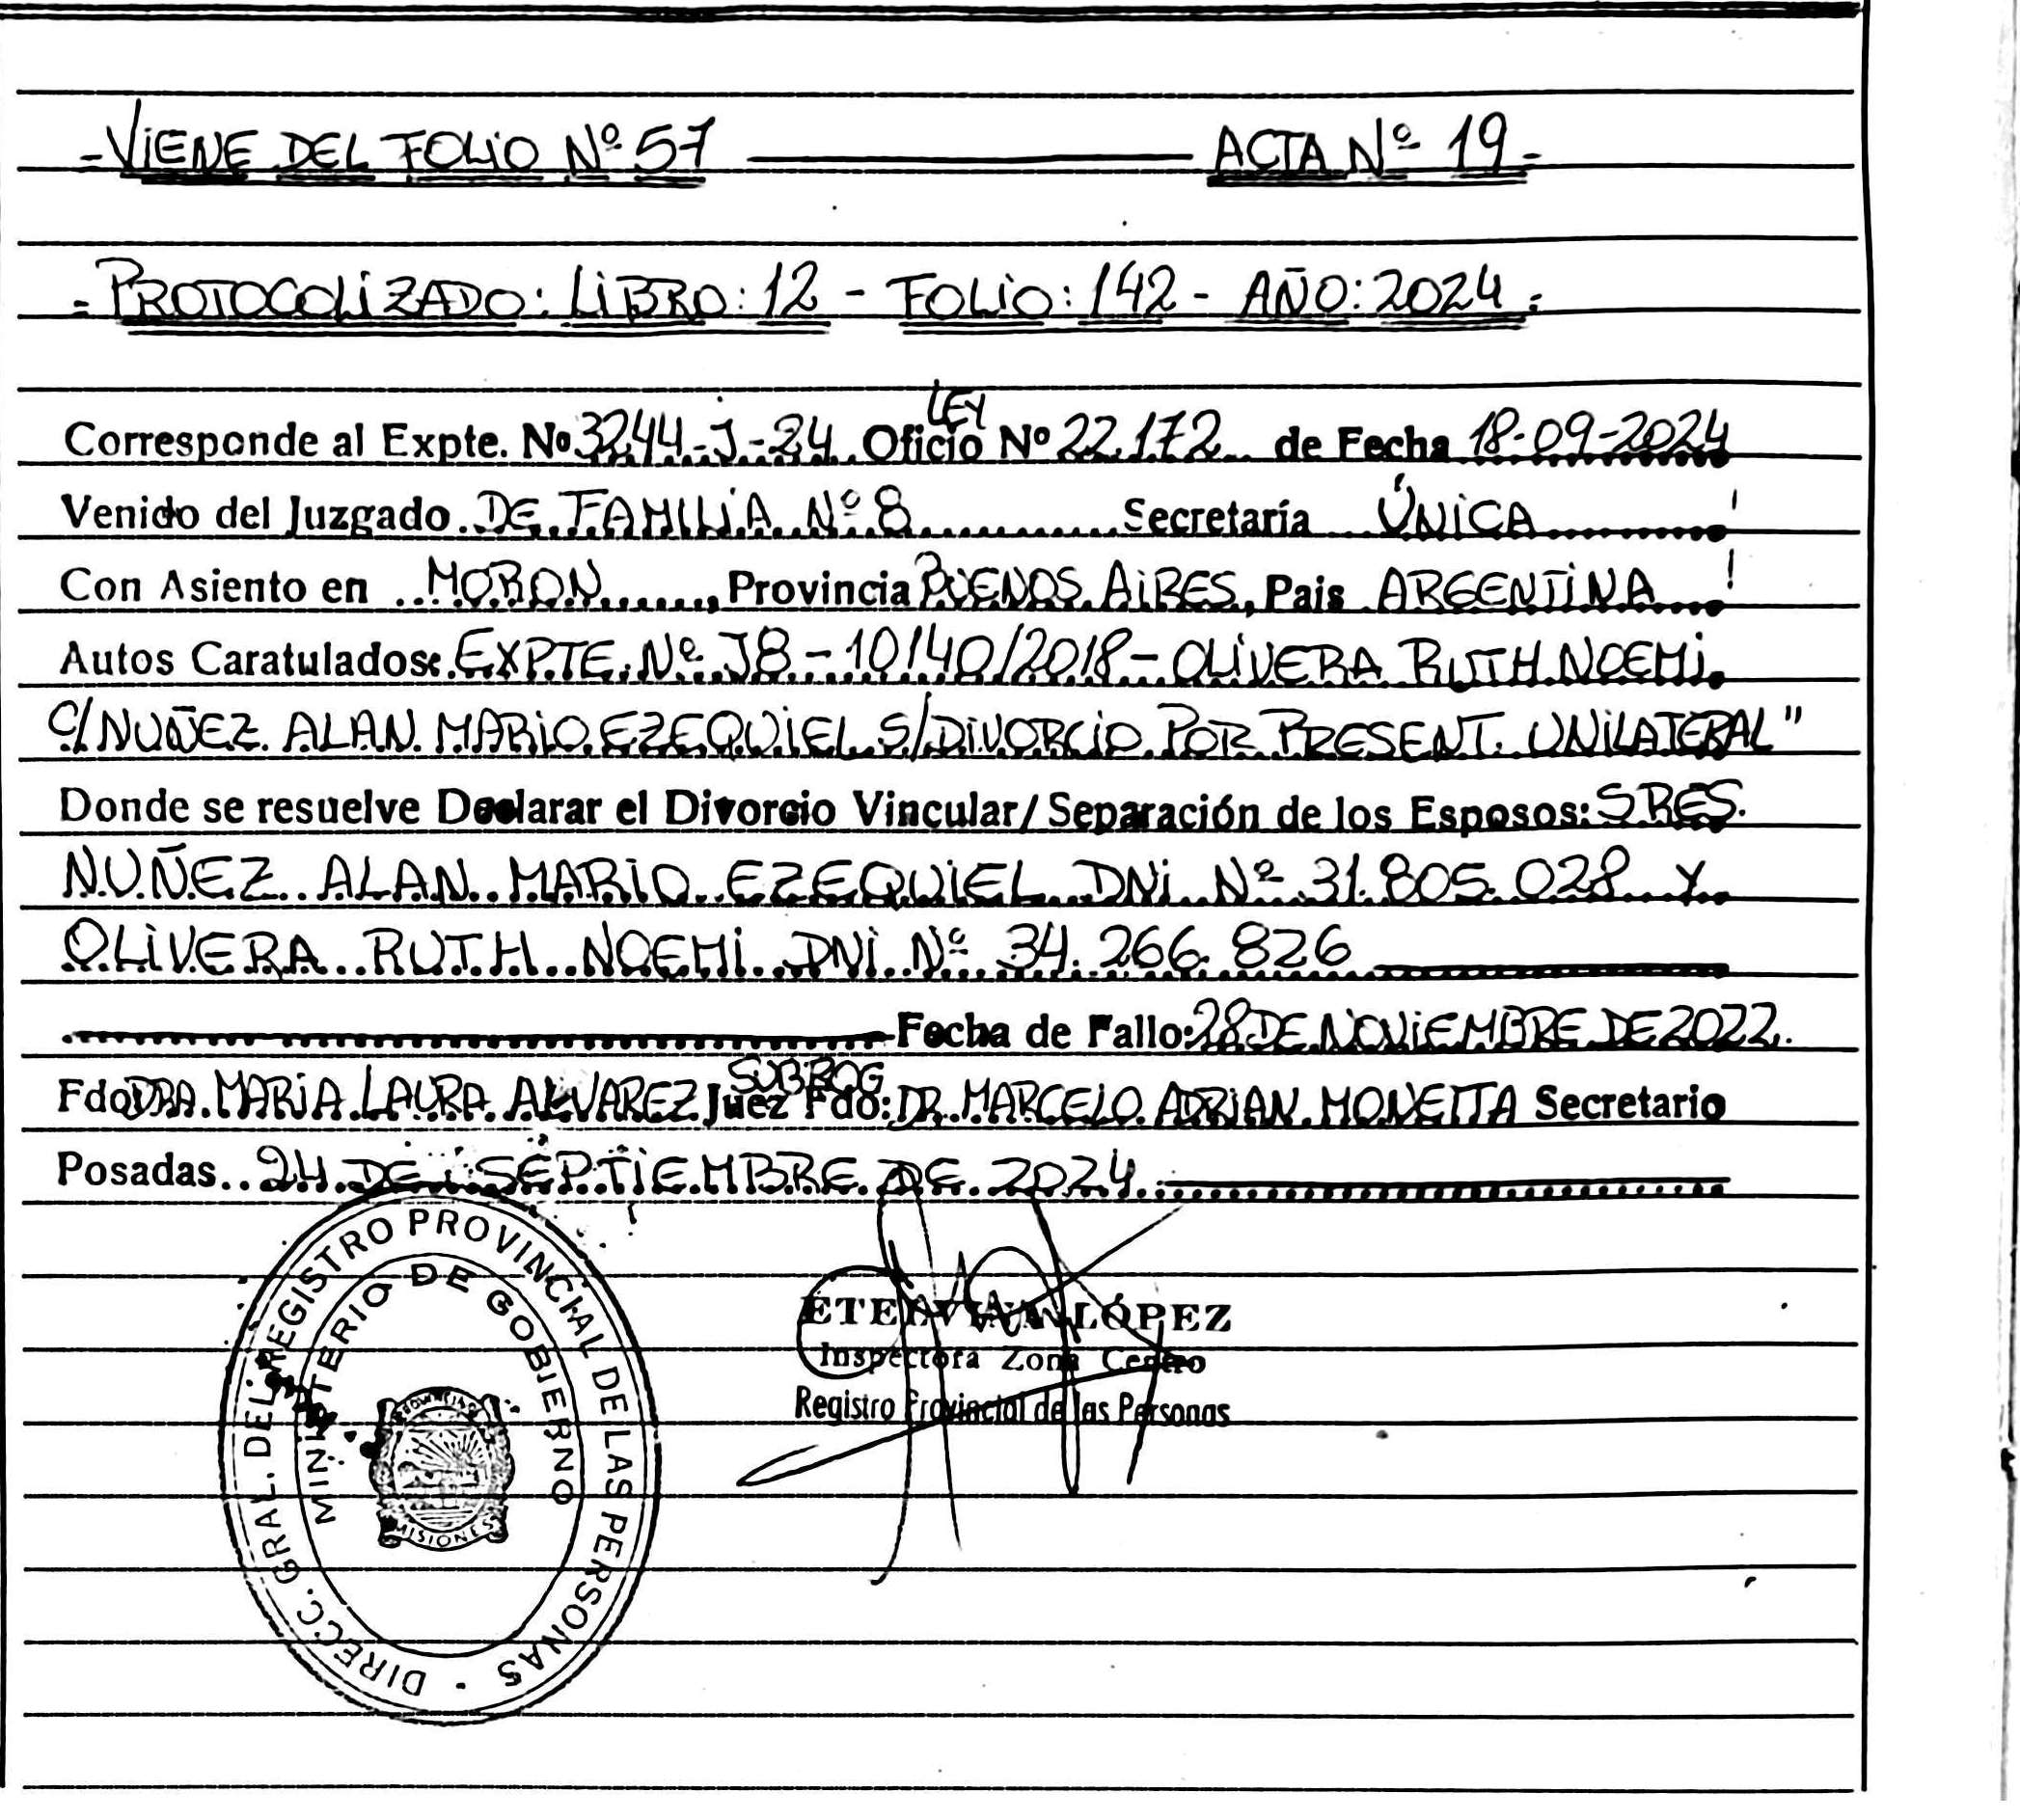 -VIENE DEL FOLIO Nº 57 ACTA Nº 19-
-PROTOCOLIZADO: LIBRO: 12 - FOLIO: 142 - AÑO: 2024-
LEY
Corresponde al Expte. Nº 3244-J-24 Oficio Nº 22.172 de Fecha 18-09-2024
Venido del Juzgado DE FAMILIA Nº 8 Secretaría ÚNICA
Con Asiento en MORON, Provincia BUENOS AIRES, Pais ARGENTINA
Autos Caratulados: EXPTE. Nº J8-10140/2018-OLIVERA RUTH NOEMI
C/NUÑEZ ALAN MARIO EZEQUIEL S/DIVORCIO POR PRESENT. UNILATERAL"
Donde se resuelve Declarar el Divorcio Vincular/Separación de los Esposos: SRES.
NUÑEZ ALAN MARIO EZEQUIEL DNI Nº 31.805.028 Y
OLIVERA RUTH NOEMI DNI Nº 34.266.826
Fecha de Fallo: 28 DE NOVIEMBRE DE 2022.
SUBROG
Fdo DRA. MARIA LAURA ALVAREZ Juez Fdo: DR. MARCELO ADRIAN MONETTA Secretario
Posadas 24 DE SEPTIEMBRE DE 2024.
DIRECC. GRAL. DEL REGISTRO PROVINCIAL DE LAS PERSONAS
MINISTERIO DE GOBIERNO
MISIONES
LÓPEZ
Inspectora Zona Centro
Registro Provincial de las Personas